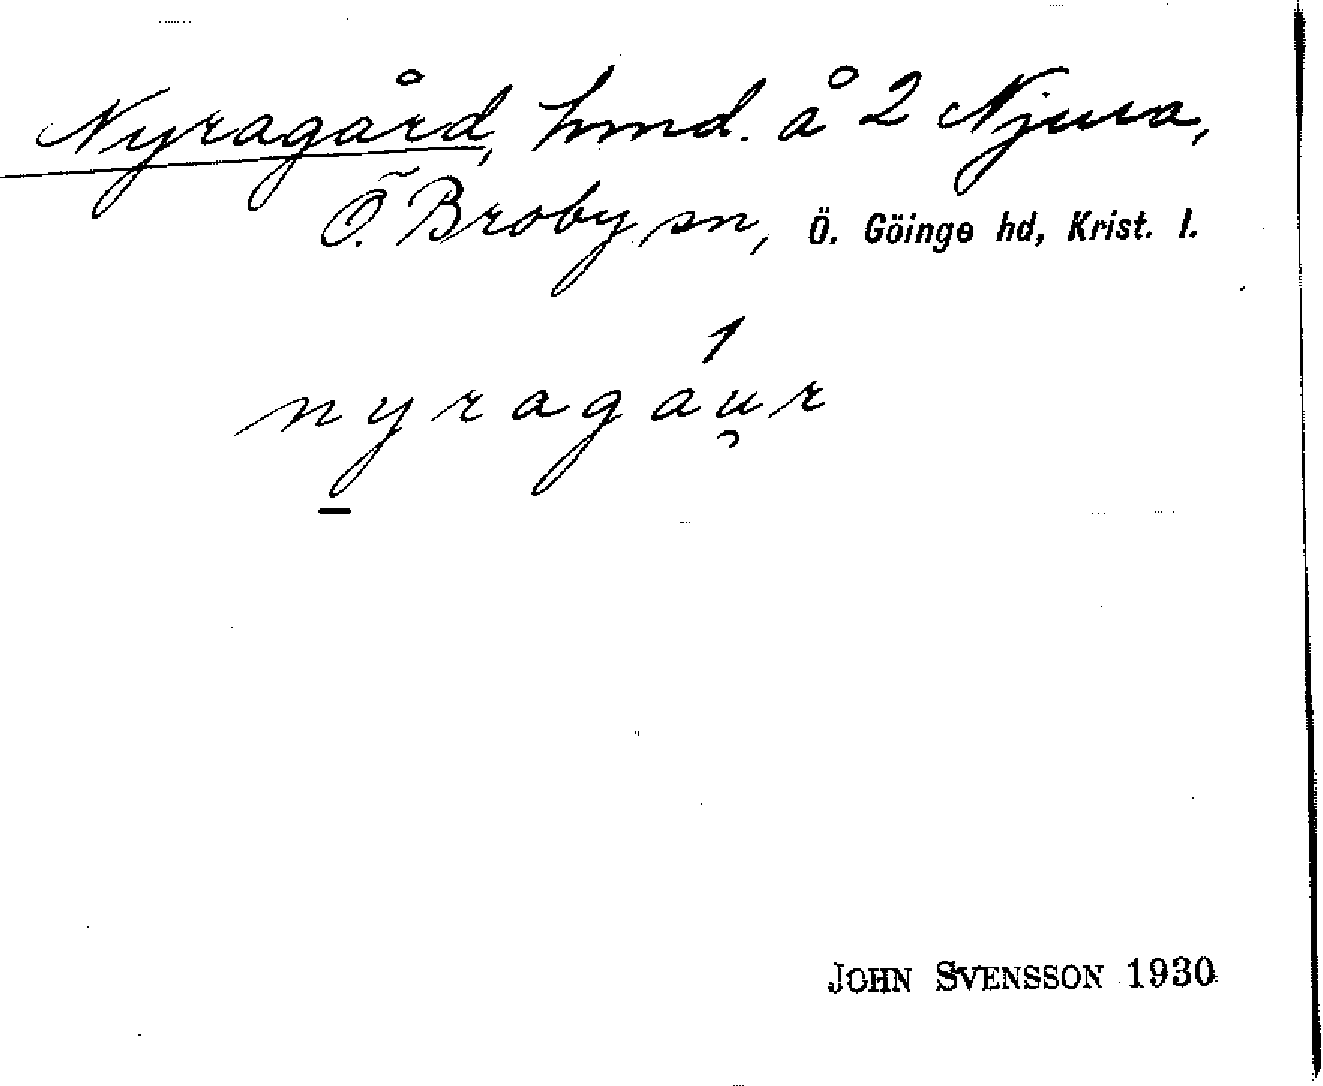 Nyragård, hmd. å 2 Njura,
Ö. Broby sn, Ö. Göinge hd, Krist. l.
1
nyragau̯r
JOHN SVENSSON 1930